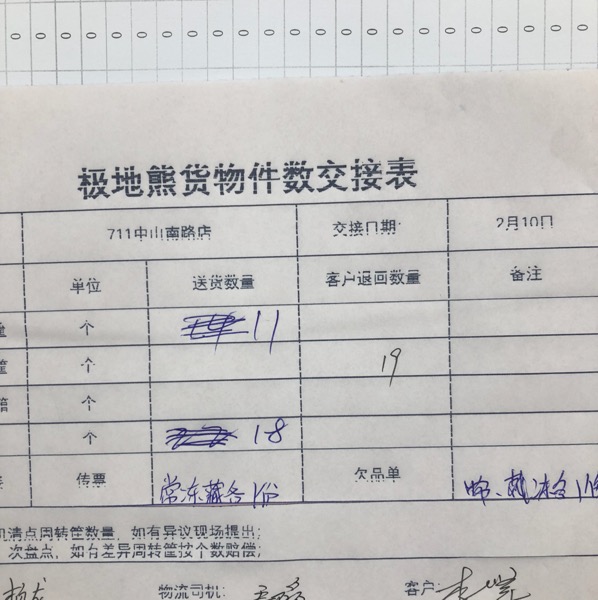 0 0 0 0 0 0 0 0 0 0 0 0 0 0 0 0
极地熊货物件数交接表
711中山南路店 交接日期: 2月10日
单位 送货数量 客户退回数量 备注
个 11
筐 个 19
箱 个
个 1-8
传票 常.冻藏各1份 欠品单
清点周转筐数量, 如有异议现场提出;
次盘点, 如有差异周转筐按个数赔偿;
物流司机: 客户: